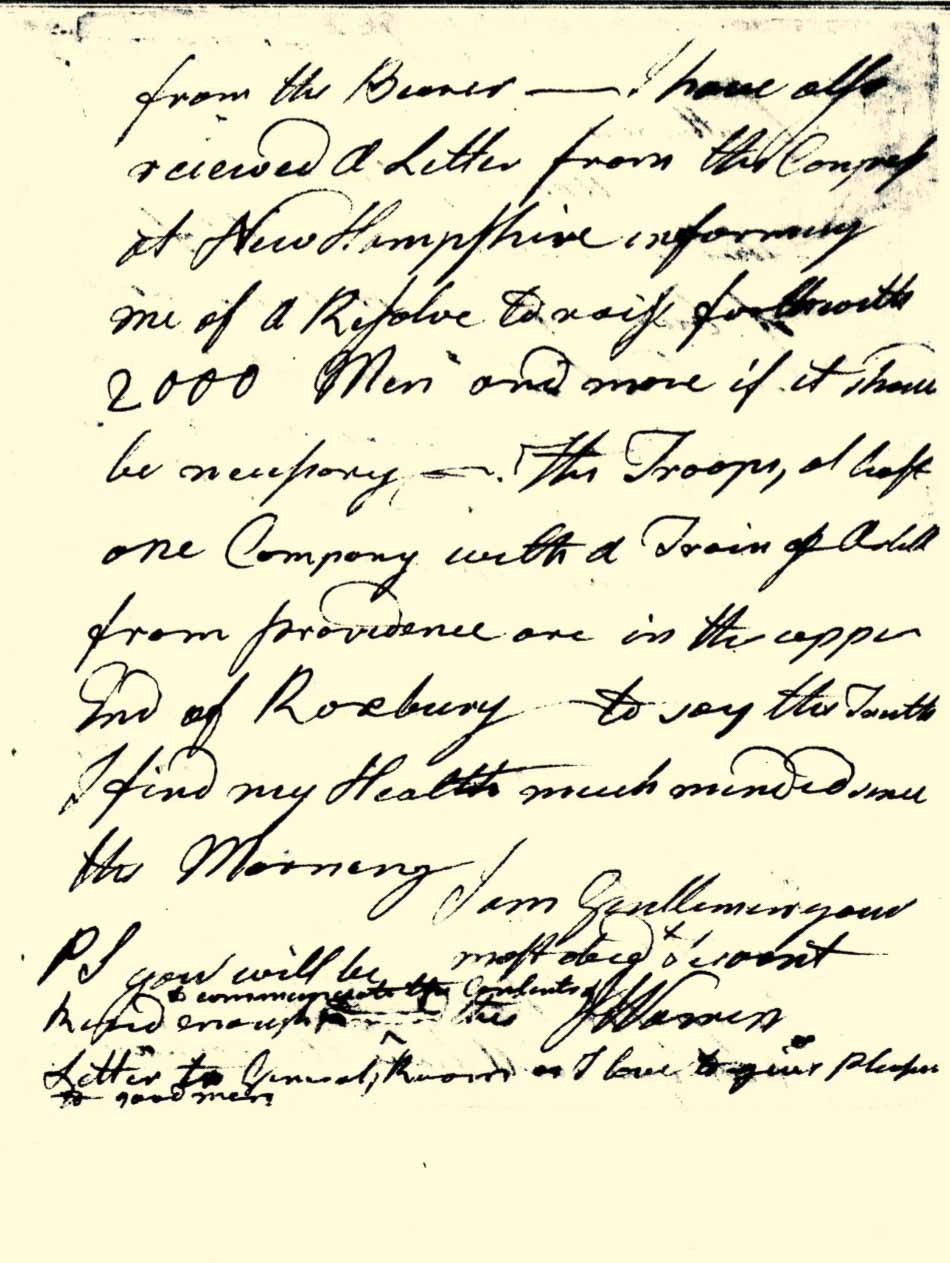 from the Bearer — I have also
recieved a Letter from the Congress
at New Hampshire informing
me of a Resolve to raise forthwith
2000 Men and more if it should
be necessary —. The Troops, at least
one Company with a Train of Artill
from providence are in the upper
End of Roxbury — to say the Truth
I find my Health much mended since
this Morning
I am Gentlemen your
most obed't servant
JWarren
PS you will be
kind enough to communicate the Contents of this
Letter to General Room as I love to give pleasure
to good men.